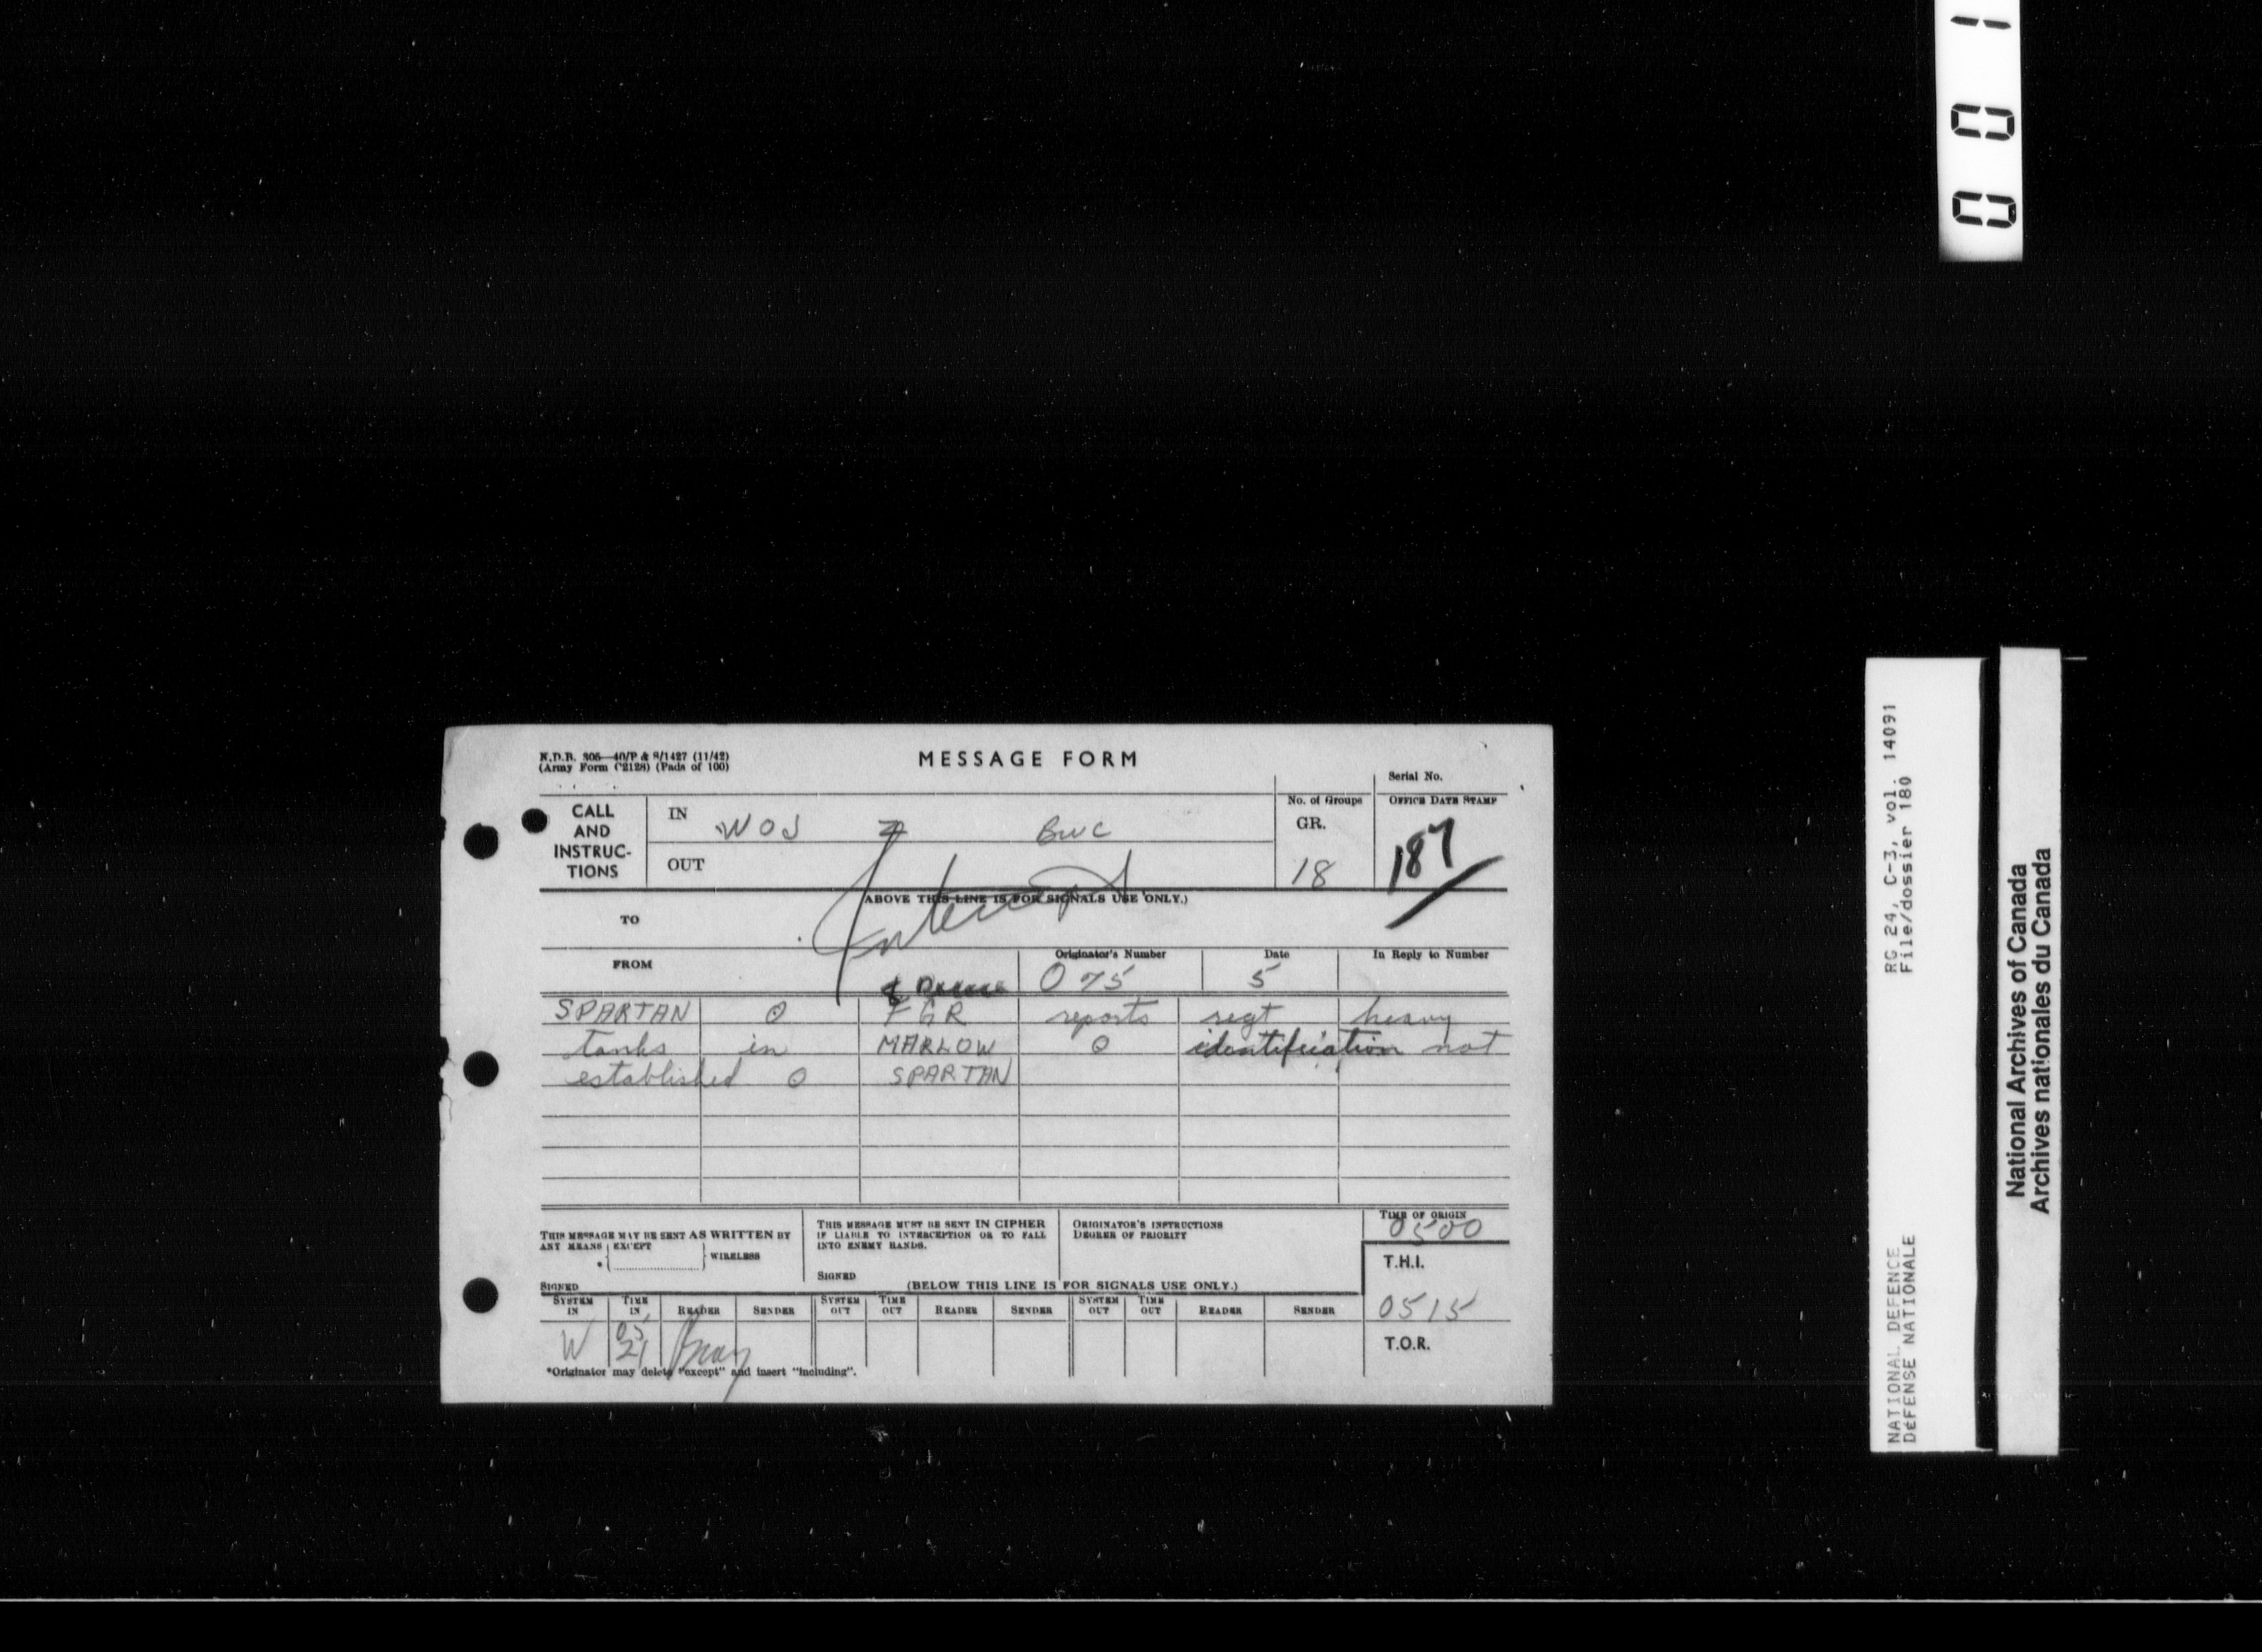 001
N.D.B. 305—40/P & S/1427 (11/42)
(Army Form C2128) (Pads of 100)
MESSAGE FORM
Serial No.
CALL AND INSTRUC-TIONS
IN WOJ BWC
OUT
No. of Groups
GR.
18
OFFICE DATE STAMP
187
(ABOVE THIS LINE IS FOR SIGNALS USE ONLY.)
TO
Intercept
FROM
Originator's Number
075
Date
5
In Reply to Number
SPARTAN O FGR reports regt heavy
tanks in MARLOW O identification not
established O SPARTAN
THIS MESSAGE MAY BE SENT AS WRITTEN BY
ANY MEANS EXCEPT WIRELESS
SIGNED
THIS MESSAGE MUST BE SENT IN CIPHER
IF LIABLE TO INTERCEPTION OR TO FALL
INTO ENEMY HANDS.
SIGNED
ORIGINATOR'S INSTRUCTIONS
DEGREE OF PRIORITY
TIME OF ORIGIN
0500
T.H.I.
0515
T.O.R.
(BELOW THIS LINE IS FOR SIGNALS USE ONLY.)
SYSTEM IN TIME IN READER SENDER SYSTEM OUT TIME OUT READER SENDER SYSTEM OUT TIME OUT READER SENDER
W 0521
*Originator may delete "except" and insert "including".
RG 24, C-3, vol. 14091
File/dossier 180
NATIONAL DEFENCE
DÉFENSE NATIONALE
National Archives of Canada
Archives nationales du Canada